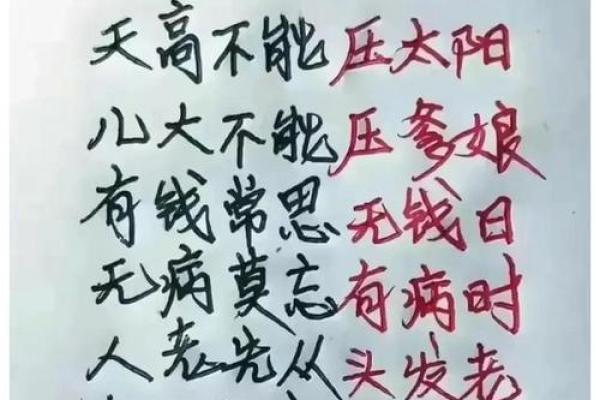 天高不能压太阳
儿大不能压爹娘
有钱常思无钱日
无病莫忘有病时
人老先从头发老